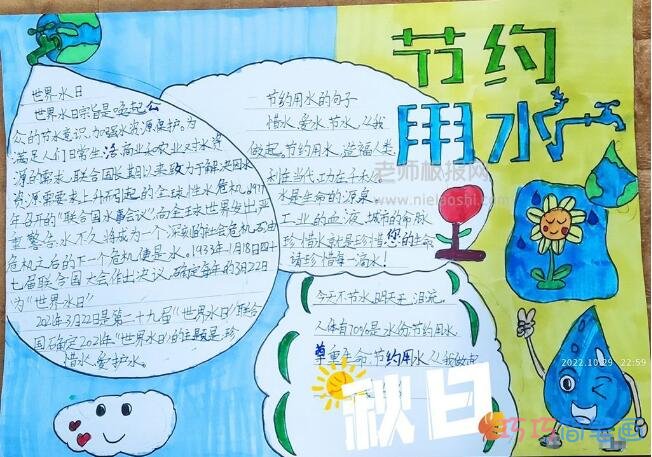 节约
用水
世界水日
世界水日宗旨是唤起公
众的节水意识,加强水资源保护。为
满足人们日常生活、商业和农业对水资
源的需求,联合国长期以来致力于解决因水
资源需求上升而引起的全球性水危机。1977
年召开的“联合国水事会议”,向全世界发出严
重警告:水不久将成为一个深刻的社会危机,石油
危机之后的下一个危机便是水。1933年1月18日四十
七届联合国大会作出决议,确定每年的3月22日
为“世界水日”
2021年3月22日是第二十九届“世界水日”,联合
国确定2021年“世界水日”的主题是:珍
惜水、爱护水。
节约用水的句子
惜水、爱水、节水,从我
做起。节约用水,造福人类,
利在当代,功在千秋。
水是生命的源泉
工业的血液,城市的命脉
珍惜水就是珍惜您的生命
请珍惜每一滴水!
今天不节水,明天 泪流。
人体有70%是水份,节约用水
尊重生命,节约用水,从我做起
老师板报网
www.nielaoshi.com
2022.10.29 22:59
秋日
巧巧简笔画